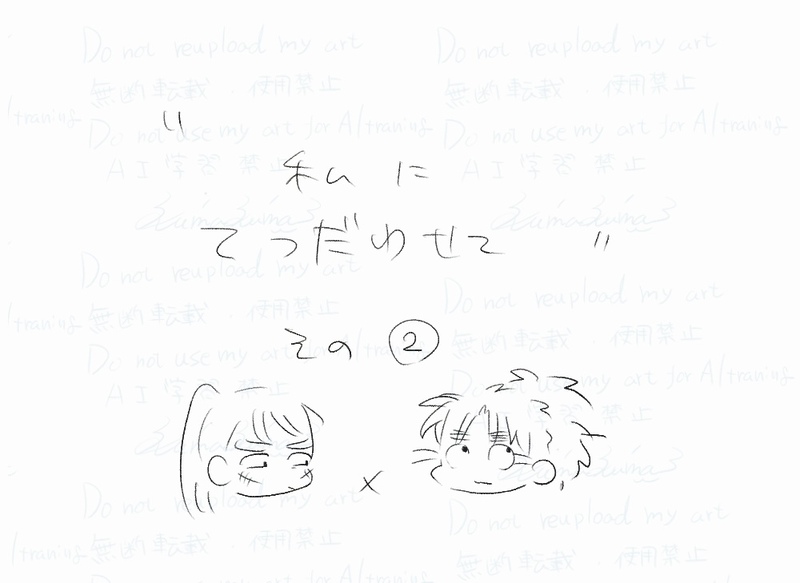 "
私に
てつだわせて "
その②
x
Do not reupload my art Do not reupload my art
無断転載・使用禁止 無断転載・使用禁止
/traning Do not use my art for AI/traning Do not use my art for AI/traning
AI学習禁止 AI学習禁止
Do not reupload my art Do not reupload my art
/traning 無断転載・使用禁止 無断転載・使用禁止
Do not use my art for AI/traning Do not use my art for AI/traning
AI学習禁止 AI学習禁止
Do not reupload my art Do not reupload my art
/traning 無断転載・使用禁止 無断転載・使用禁止